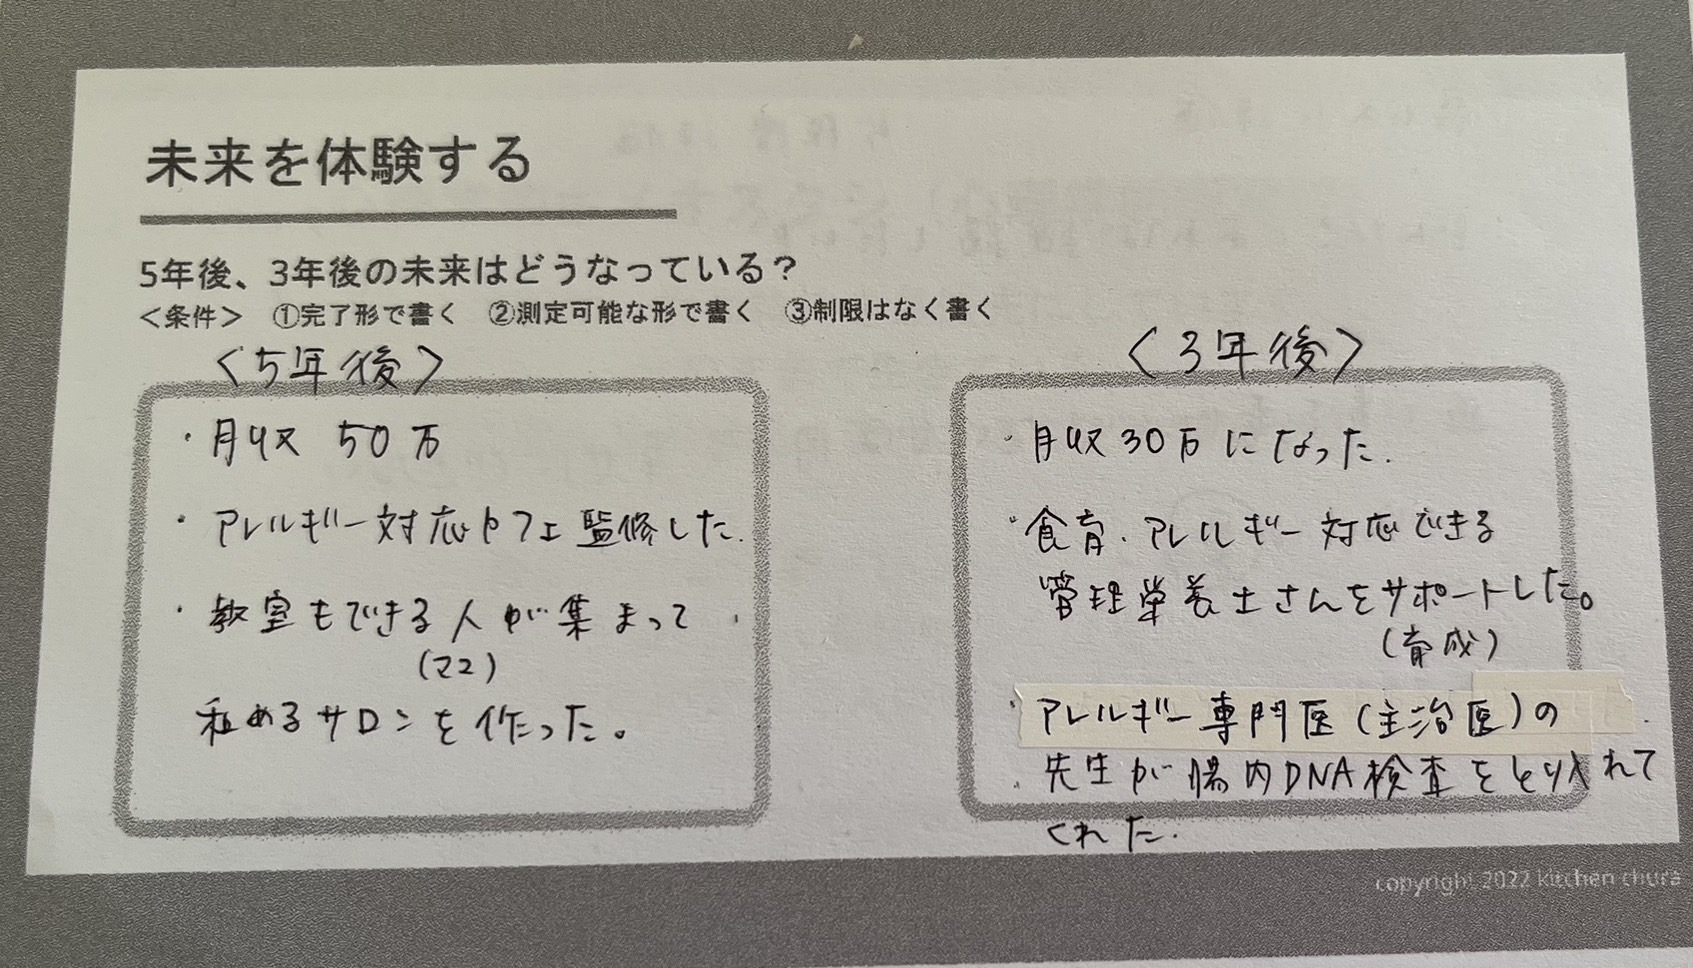 未来を体験する
5年後、3年後の未来はどうなっている？
＜条件＞　①完了形で書く　②測定可能な形で書く　③制限はなく書く
〈5年後〉
・月収 50万
・アレルギー対応カフェ監修した.
・教室もできる人が集まって
(ママ)
私めるサロンを作った。
〈3年後〉
・月収30万になった.
・食育、アレルギー対応できる
管理栄養士さんをサポートした。
(育成)
・アレルギー専門医(主治医)の
先生が腸内DNA検査をとり入れて
くれた.
copyright 2022 kitchen chura